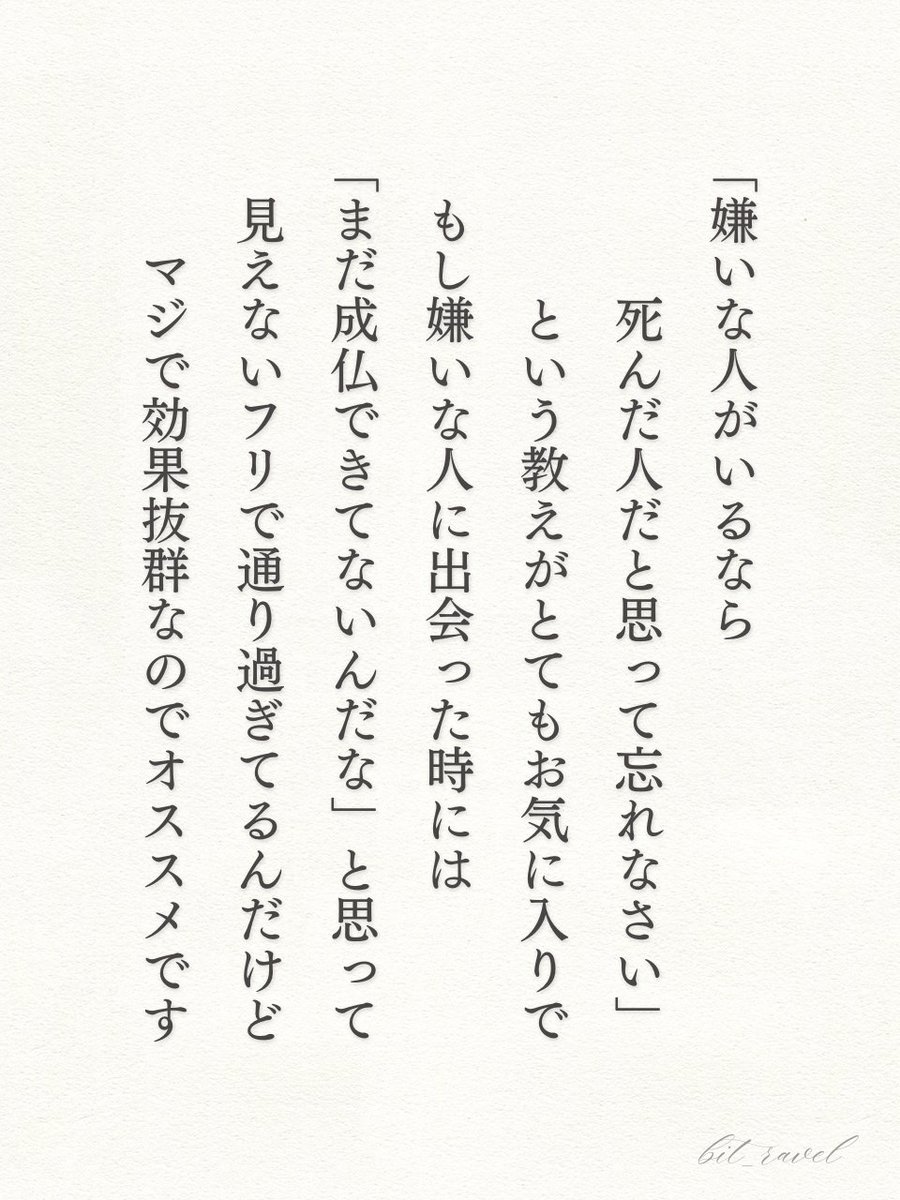 「嫌いな人がいるなら
死んだ人だと思って忘れなさい」
という教えがとてもお気に入りで
もし嫌いな人に出会った時には
「まだ成仏できてないんだな」と思って
見えないフリで通り過ぎてるんだけど
マジで効果抜群なのでオススメです
bit_ravel